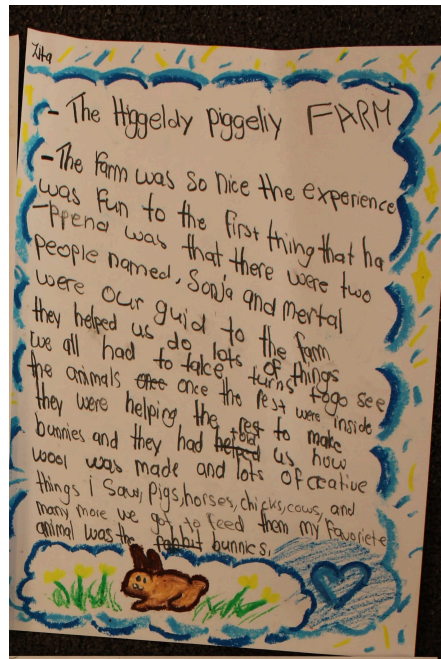 Zita
- The Higgeldy piggeliy FARM
- The farm was so nice the experience
was fun to the first thing that ha
-ppend was that there were two
people named, Sonja and mertal
were our guid to the farm
they helped us do lots of things
we all had to take turns to go see
the animals once once the rest were inside
they were helping the rest to make
bunnies and they had helped told us how
wool was made and lots of creative
things i saw, pigs, horses, chicks, cows, and
many more we got to feed them my favoriete
animal was the rabbit bunnies,